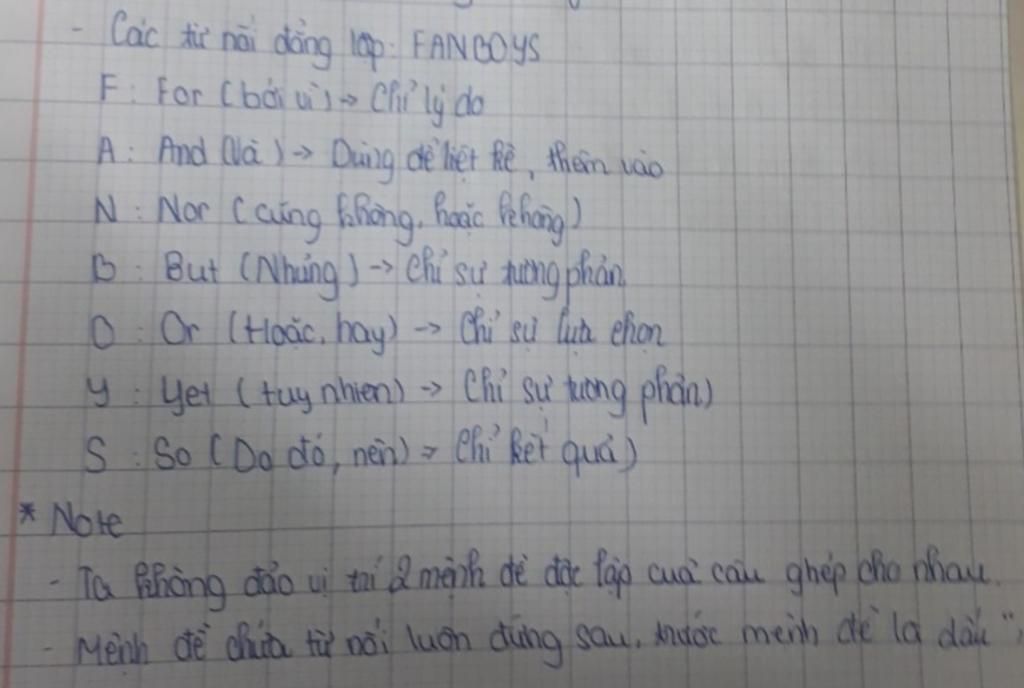 - Các từ nối đẳng lập: FANBOYS
F: For (bởi vì) → Chỉ lý do
A: And (Và) → Dùng để liệt kê, thêm vào
N: Nor (cũng không, hoặc không)
B: But (Nhưng) → Chỉ sự tương phản
O: Or (Hoặc, hay) → Chỉ sự lựa chọn
Y: Yet (tuy nhiên) → Chỉ sự tương phản)
S: So (Do đó, nên) → Chỉ kết quả)
* Note
- Ta không đảo vị trí 2 mệnh đề độc lập của câu ghép cho nhau.
- Mệnh đề chứa từ nối luôn đứng sau, trước mệnh đề là dấu ",